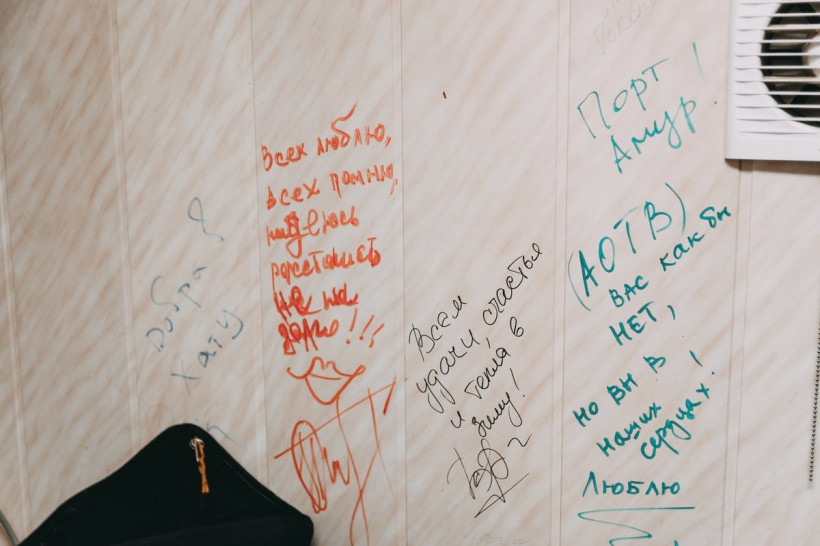 Добра
хату
Всех люблю,
всех помню,
надеюсь
расстались
не на
долго!!!
Всем
удачи, счастья
и тепла в
зиму!
Порт
Амур!
(АОТВ)
вас как бы
нет,
но вы в
наших
сердцах!
Люблю